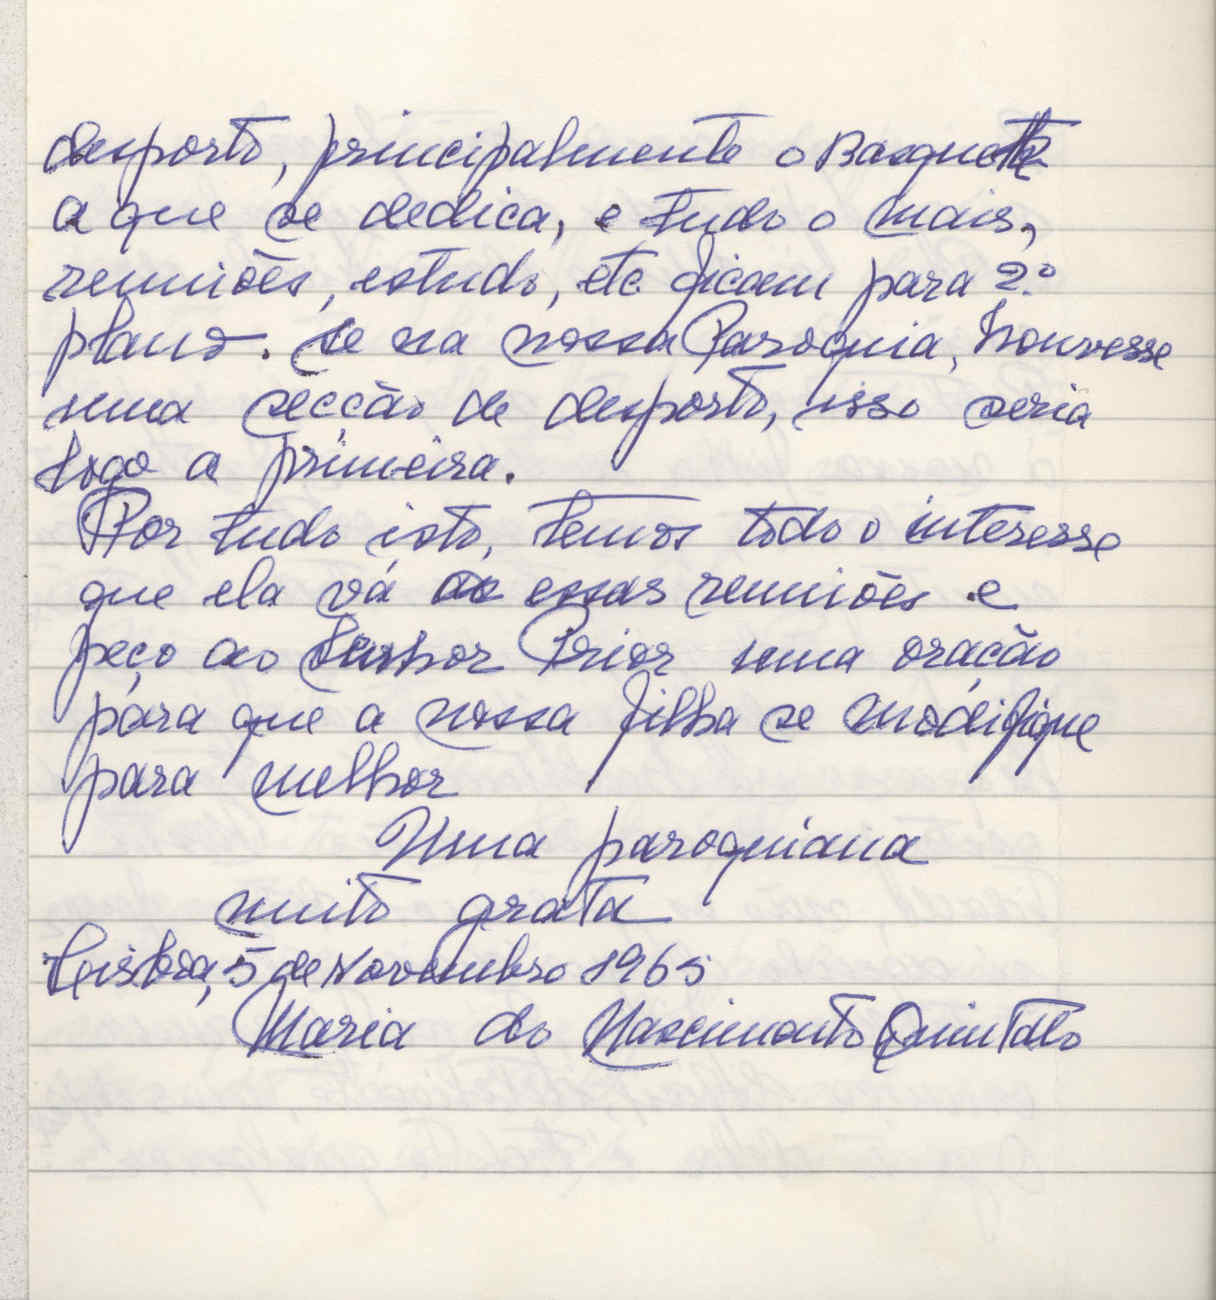 desporto, principalmente o Basquete
a que se dedica, e tudo o mais,
reuniões, estudo, etc ficam para 2.º
plano. Se na nossa Paroquia, houvesse
uma secção de desporto, isso seria
logo a primeira.
Por tudo isto, temos todo o interesse
que ela vá ás essas reuniões e
peço ao Senhor Prior uma oração
para que a nossa filha se modifique
para melhor
Uma paroquiana
muito grata
Lisboa, 5 de Novembro 1965
Maria do Nascimento Quintato